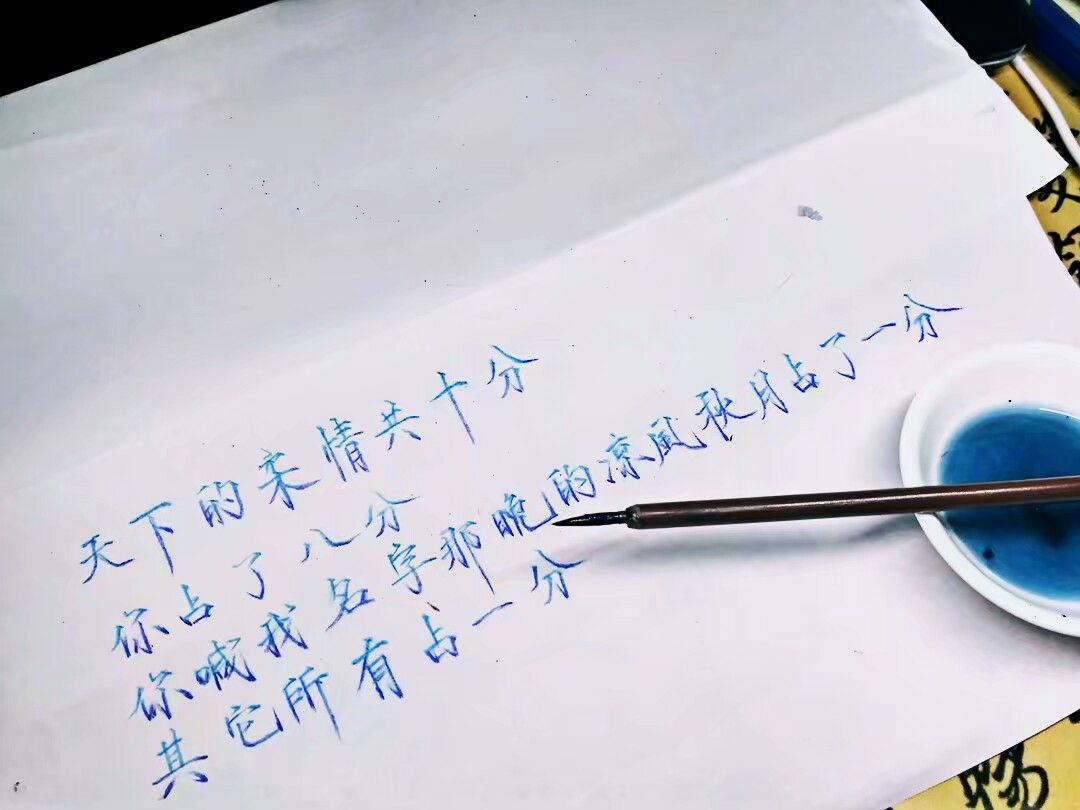 天下的柔情共十分
你占了八分
你喊我名字那晚的凉风秋月占了一分
其它所有占一分